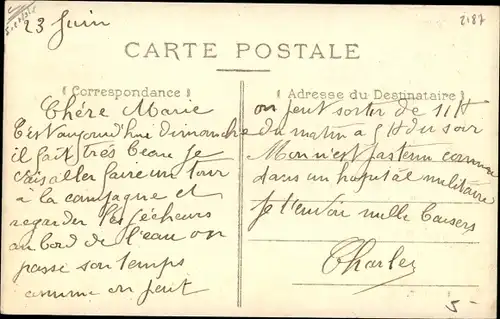 23 Juin
2187
CARTE POSTALE
Correspondance
Adresse du Destinataire
Chére Marie
C'est aujourd'hui dimanche
il fait très beau je
vais aller faire un tour
a la campagne et
regarder les pécheurs
au bord de l'eau on
passe son temps
comme on peut
on peut sortir de 11H
du matin a 9H du soir
Mon n'est pas tenu comme
dans un hopital militaire
Je t'envoi mille baisers
Charles
5-